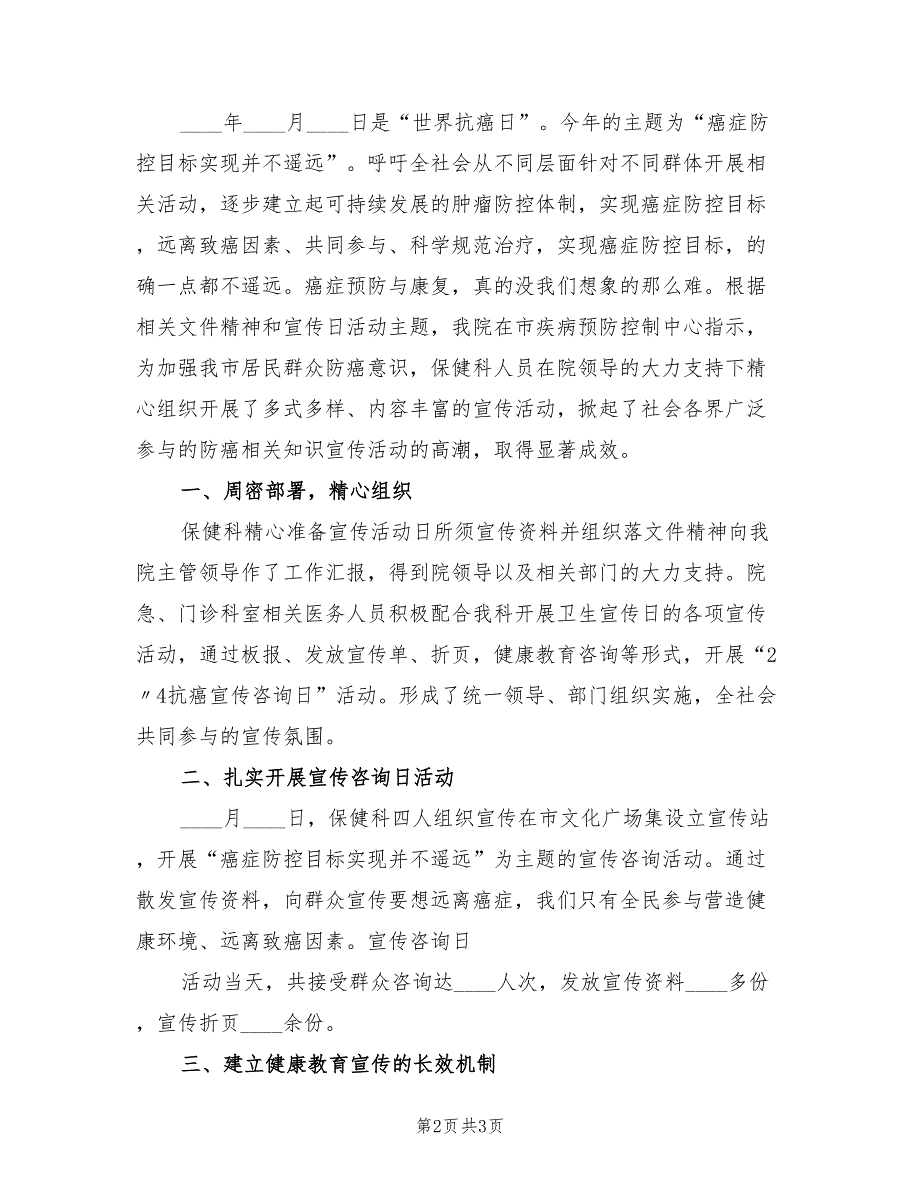 ____年____月____日是“世界抗癌日”。今年的主题为“癌症防
控目标实现并不遥远”。呼吁全社会从不同层面针对不同群体开展相
关活动，逐步建立起可持续发展的肿瘤防控体制，实现癌症防控目标
，远离致癌因素、共同参与、科学规范治疗，实现癌症防控目标，的
确一点都不遥远。癌症预防与康复，真的没我们想象的那么难。根据
相关文件精神和宣传日活动主题，我院在市疾病预防控制中心指示，
为加强我市居民群众防癌意识，保健科人员在院领导的大力支持下精
心组织开展了多式多样、内容丰富的宣传活动，掀起了社会各界广泛
参与的防癌相关知识宣传活动的高潮，取得显著成效。
一、周密部署，精心组织
保健科精心准备宣传活动日所须宣传资料并组织落文件精神向我
院主管领导作了工作汇报，得到院领导以及相关部门的大力支持。院
急、门诊科室相关医务人员积极配合我科开展卫生宣传日的各项宣传
活动，通过板报、发放宣传单、折页，健康教育咨询等形式，开展“2
〃4抗癌宣传咨询日”活动。形成了统一领导、部门组织实施，全社会
共同参与的宣传氛围。
二、扎实开展宣传咨询日活动
____月____日，保健科四人组织宣传在市文化广场集设立宣传站
，开展“癌症防控目标实现并不遥远”为主题的宣传咨询活动。通过
散发宣传资料，向群众宣传要想远离癌症，我们只有全民参与营造健
康环境、远离致癌因素。宣传咨询日
活动当天，共接受群众咨询达____人次，发放宣传资料____多份
，宣传折页____余份。
三、建立健康教育宣传的长效机制
第2页 共3页